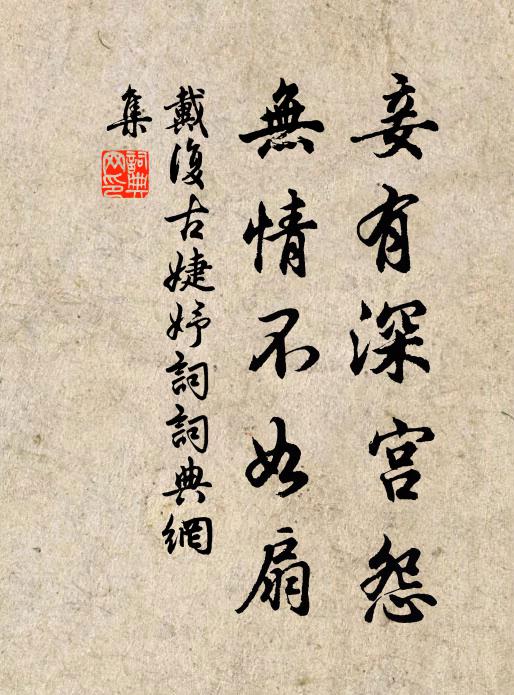 妾有深宫怨
無情不如扇
戴復古婕妤詞詞典網
集
詞典
网印